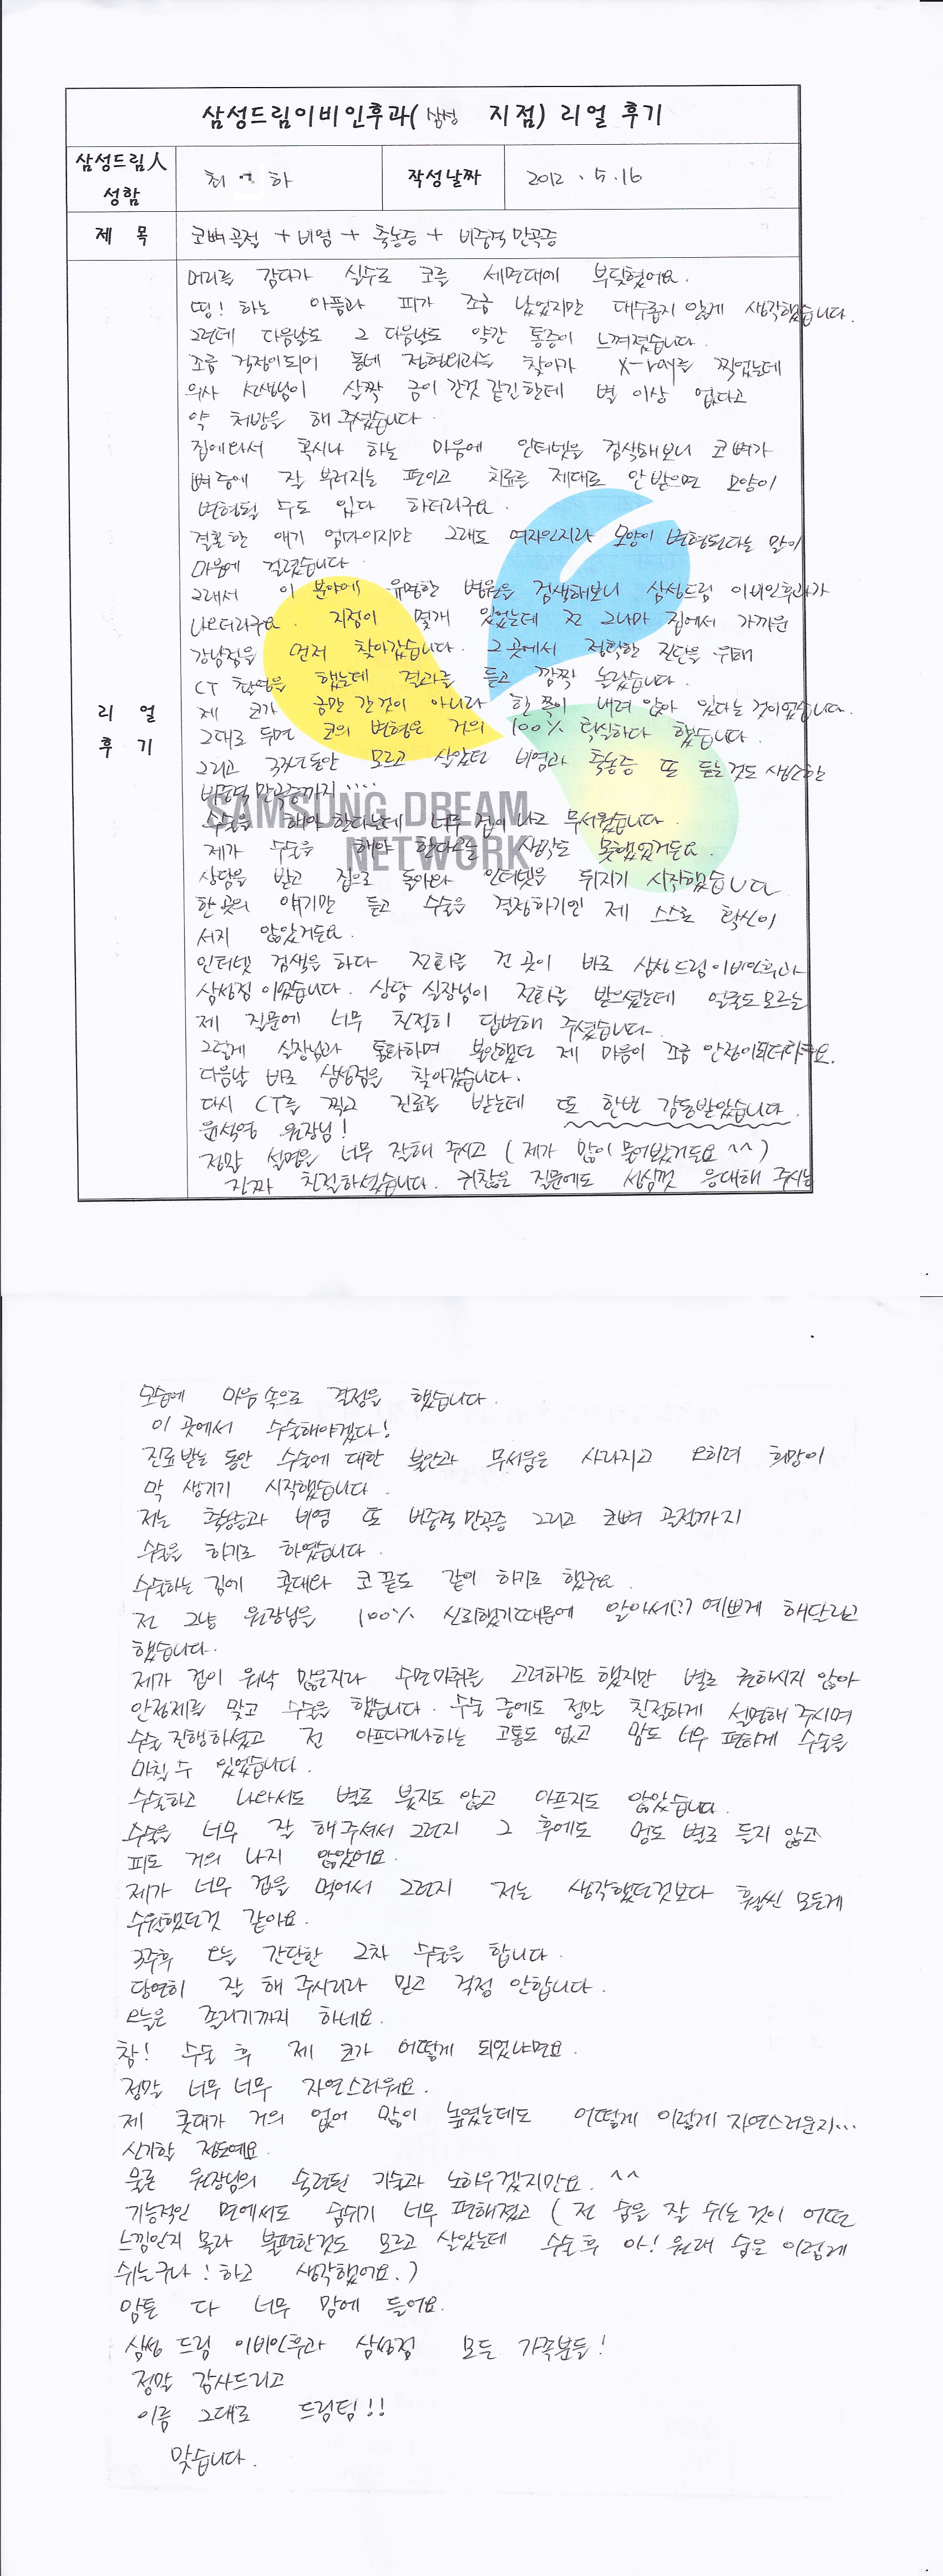 삼성드림이비인후과( 삼성 지점) 리얼 후기
삼성드림人 성함
최 하
작성날짜
2012 . 5. 16
제 목
코뼈골절 + 비염 + 축농증 + 비중격 만곡증
리 얼 후 기
머리를 감다가 실수로 코를 세면대에 부딪혔어요.
띵! 하는 아픔과 피가 조금 났었지만 대수롭지 않게 생각했습니다.
그런데 다음날도 그 다음날도 약간 통증이 느껴졌습니다.
조금 걱정이되어 동네 정형외과를 찾아가 X-ray를 찍었는데
의사 선생님이 살짝 금이 간것 같긴한데 별 이상 없다고
약 처방을 해 주셨습니다.
집에와서 혹시나 하는 마음에 인터넷을 검색해보니 코뼈가
뼈중에 잘 부러지는 편이고 치료를 제대로 안 받으면 모양이
변형될 수도 있다 하더라구요.
결혼한 애기 엄마이지만 그래도 여자인지라 모양이 변형된다는 말이
마음에 걸렸습니다.
그래서 이 분야에 유명한 병원을 검색해보니 삼성드림 이비인후과가
나오더라구요. 지점이 몇개 있었는데 전 그나마 집에서 가까운
강남점을 먼저 찾아갔습니다. 그 곳에서 정확한 진단을 위해
CT 촬영을 했는데 결과를 듣고 깜짝 놀랐습니다.
제 코가 금만 간것이 아니라 한 쪽이 내려 앉아 있다는 것이었습니다.
그대로 두면 코의 변형은 거의 100% 확실하다 했습니다.
그리고 동안 모르고 살았던 비염과 축농증 또 듣는것도 생소한
비중격 만곡증까지 ....
SAMSUNG DREAM
NETWORK
수술을 해야 한다는데 너무 겁이나고 무서웠습니다.
제가 수술을 해야 한다고는 생각도 못했었거든요.
상담을 받고 집으로 돌아와 인터넷을 뒤지기 시작했습니다
한 곳의 얘기만 듣고 수술을 결정하기엔 제 스스로 확신이
서지 않았거든요.
인터넷 검색을 하다 전화를 건 곳이 바로 삼성드림이비인후과
삼성점 이었습니다. 상담 실장님이 전화를 받으셨는데 얼굴도모르는
제 질문에 너무 친절히 답변해 주셨습니다.
그렇게 실장님과 통화하며 불안했던 제 마음이 조금 안정이되더라구요.
다음날 바로 삼성점을 찾아갔습니다.
다시 CT를 찍고 진료를 받는데 또 한번 감동받았습니다.
윤석영 원장님!
정말 설명을 너무 잘해 주시고 ( 제가 많이 물어봤거든요 ^^ )
진짜 친절하셨습니다. 귀찮은 질문에도 성심껏 응대해 주시는
모습에 마음속으로 결정을 했습니다.
이 곳에서 수술해야겠다!
진료받는 동안 수술에 대한 불안과 무서움은 사라지고 오히려 희망이
막 생기기 시작했습니다.
저는 축농증과 비염 또 비중격만곡증 그리고 코뼈 골절까지
수술을 하기로 하였습니다.
수술하는 김에 콧대와 코끝도 같이 하기로 했구요.
전 그냥 원장님을 100% 신뢰했기때문에 알아서(?) 예쁘게 해달라고
했습니다.
제가 겁이 워낙 많은지라 수면마취를 고려하기도 했지만 별로 권하시지 않아
안정제를 맞고 수술을 했습니다. 수술 중에도 정말 친절하게 설명해 주시며
수술 진행하셨고 전 아프다거나하는 고통도 없고 맘도 너무 편하게 수술을
마칠수 있었습니다.
수술하고 나와서도 별로 붓지도 않고 아프지도 않았습니다.
수술을 너무 잘 해주셔서 그런지 그 후에도 멍도 별로 들지 않고
피도 거의 나지 않았어요.
제가 너무 겁을 먹어서 그런지 저는 생각했던것보다 훨씬 모든게
수월했던것 같아요.
3주후 오늘 간단한 2차 수술을 합니다.
당연히 잘 해 주시리라 믿고 걱정 안합니다.
오늘은 졸리기까지 하네요.
참! 수술 후 제 코가 어떻게 되었냐면요.
정말 너무 너무 자연스러워요.
제 콧대가 거의 없어 많이 높였는데도 어떻게 이렇게 자연스러운지...
신기할 정도예요.
물론 원장님의 숙련된 기술과 노하우겠지만요. ^^
기능적인 면에서도 숨쉬기 너무 편해졌고 ( 전 숨을 잘 쉬는것이 어떤
느낌인지 몰라 불편한것도 모르고 살았는데 수술후 아! 원래 숨은 이렇게
쉬는구나! 하고 생각했어요.)
암튼 다 너무 맘에 들어요.
삼성 드림 이비인후과 삼성점 모든 가족분들!
정말 감사드리고
이름 그대로 드림팀!!
맞습니다.